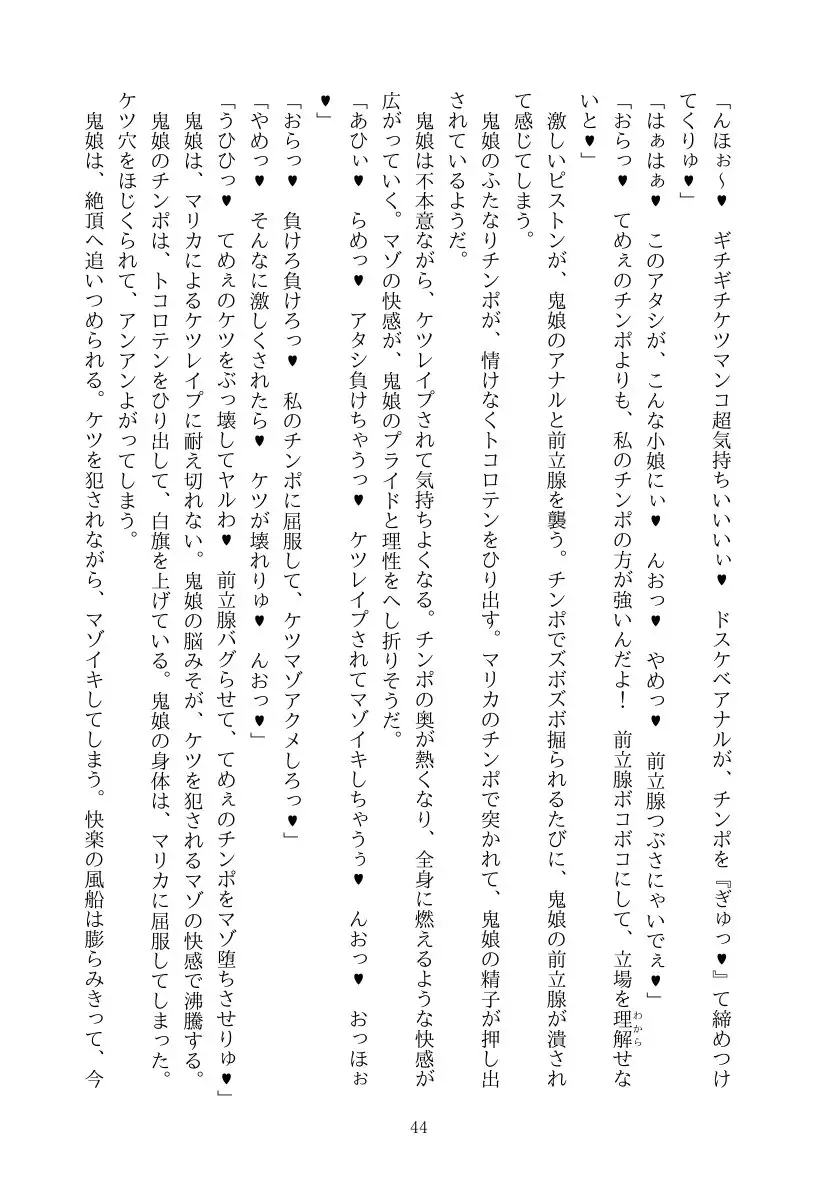 「んほぉ～♥　ギチギチケツマンコ超気持ちいいいぃ♥　ドスケベアナルが、チンポを『ぎゅっ♥』て締めつけ
てくりゅ♥」
「はぁはぁ♥　このアタシが、こんな小娘にぃ♥　んおっ♥　やめっ♥　前立腺つぶさにゃいでぇ♥」
「おらっ♥　てめぇのチンポよりも、私のチンポの方が強いんだよ！　前立腺ボコボコにして、立場を理解せな
わから
いと♥」
激しいピストンが、鬼娘のアナルと前立腺を襲う。チンポでズボズボ掘られるたびに、鬼娘の前立腺が潰され
て感じてしまう。
鬼娘のふたなりチンポが、情けなくトコロテンをひり出す。マリカのチンポで突かれて、鬼娘の精子が押し出
されているようだ。
鬼娘は不本意ながら、ケツレイプされて気持ちよくなる。チンポの奥が熱くなり、全身に燃えるような快感が
広がっていく。マゾの快感が、鬼娘のプライドと理性をへし折りそうだ。
「あひぃ♥　らめっ♥　アタシ負けちゃうっ♥　ケツレイプされてマゾイキしちゃうぅ♥　んおっ♥　おっほぉ
♥」
「おらっ♥　負けろ負けろっ♥　私のチンポに屈服して、ケツマゾアクメしろっ♥」
「やめっ♥　そんなに激しくされたら♥　ケツが壊れりゅ♥　んおっ♥」
「うひひっ♥　てめぇのケツをぶっ壊してヤルわ♥　前立腺バグらせて、てめぇのチンポをマゾ堕ちさせりゅ♥」
鬼娘は、マリカによるケツレイプに耐え切れない。鬼娘の脳みそが、ケツを犯されるマゾの快感で沸騰する。
鬼娘のチンポは、トコロテンをひり出して、白旗を上げている。鬼娘の身体は、マリカに屈服してしまった。
ケツ穴をほじくられて、アンアンよがってしまう。
鬼娘は、絶頂へ追いつめられる。ケツを犯されながら、マゾイキしてしまう。快楽の風船は膨らみきって、今
44